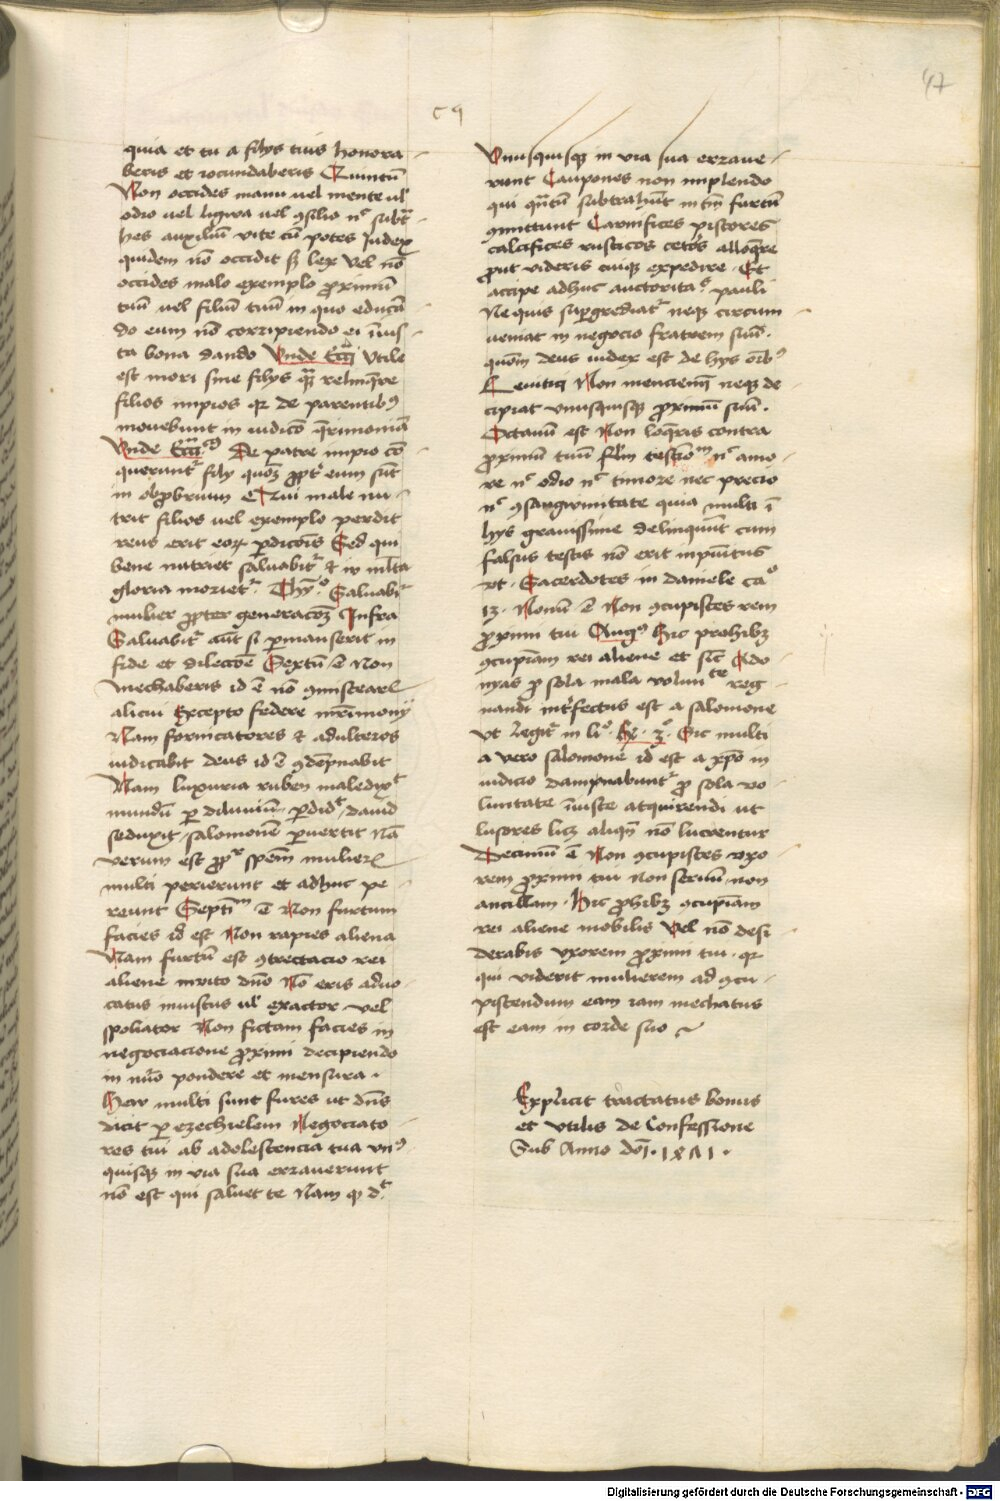 47
c 9
quia et tu a filijs tuis honora
beris et iocundaberis Quintū
Non occides manu uel mente ul'
odio uel ligwa uel ɔsilio nͨ subt̄
hes auxiliū vite cū potes Judex
quidem nō occidit sꝫ lex Vel nō
occides malo exemplo ꝓximū
tuū uel filiū tuū in quo educā
do eum nō corripiendo ei īius
ta bona dando Vnde Eccͣ Utile
est mori sine filijs qͣꝫ relinq̄re
filios impios qꝛ de parentibꝰ
mouebunt in iudicō q̄rimoniā
Vnde Eccͣ De patre impio cō
querunt᷑ filij quōꝫ ꝓpt᷑ eum sūt
in obꝓbrium Qui male nu
trit filios uel exemplo perdit
reus erit eoꝝ ꝑdicōis Sed qui
bene nutriet saluabit᷑ et in mlta
gloria moriet᷑. Thyͦ. Saluabit᷑
mulier ꝓpter generacōꝫ Infra
Saluabit᷑ aūt si ꝑmanserit in
fide et dilectōe Sextū ē Non
mechaberis id ē nō ɔmiscearꝭ
alicui Excepto federe mr̄imonij
Nam fornicatores et adulteros
iudicabit deus id ē ɔdēpnabit
Nam luxuria ruben maledixͭ
mundū ꝑ diluuiū ꝑdidͭ, dauid
seduxit, salomonē ꝑuertit Nā
verum est ꝓpͬ spēm mulierꝭ
multi perierunt et adhuc pe
reunt Septīͫ ē Non furtum
facies id est Non rapies aliena
Nam furtū est ɔtrectacio rei
aliene inuito dn̄o Nō eris aduo
catus iniustus ul' exactor vel
spoliator Non fictam facies in
negociacione ꝓximi decipiendo
in nūo pondere et mensura.
Heu multi sunt fures ut dn̄s
dicit ꝑ ezechielem Negociato
res tui ab adolescencia tua vnꝰ
quisqꝫ in via sua erzauerunt
nō est qui saluet te Nam qͥ dͭ
Vnusquisqꝫ in via sua erzaue
runt Caupones non implendo
qui qn̄tū subtrahūt in tm̄ furtū
ɔmittunt Carnifices pistores
calcifices rusticos cetōs alloq̄re
ꝓut videris cuiqꝫ expedire. Et
accipe adhuc auctoritaͭꝭ pauli
Ne quis suꝑgrediat᷑ neqꝫ circum
ueniat in negocio fratrem suū.
quōm deus iudex est de hijs oībꝰ
Leuitici Non menciemī neqꝫ de
cipiat vnusquisqꝫ ꝓximū suū.
Octauū est Non loq̄ris contra
ꝓximū tuū flm̄ testīoͫ nͨ amo
re nͨ odio nͨ timore nec precio
nͨ ɔsangwinitate quia multi ī
hijs grauissime delinquūt cum
falsus testis nō erit inpūitus
vt. Sacerdotes in daniele caͦ
13. Nonū ē Non ɔcupisces rem
ꝓximi tui Augꝰ Hic prohibꝫ
ɔcupīam rei aliene et sic̄ Ado
nyas ꝓ sola mala volunͭͤ reg
nandi int᷑fectus est a salomone
vt legit᷑ in liͦ. Re. 3ͦ. Sic multi
a vero salomone id est a xp̄o in
iudicio dampnabunt᷑ ꝓ sola vo
luntate īiuste atquirendi ut
lusores licꝫ aliqn̄ nō lucrentur
Decimū ē Non ɔcupisces vxo
rem ꝓximi tui non seruū non
ancillam. Hic ꝓhibꝫ ɔcupīam
rei aliene mobilis Vel nō desi
derabis vxorem ꝓximi tui. qꝛ
qui viderit mulierem ad ɔcu
piscendum eam iam mechatus
est eam in corde suo
Explicit tractatus bonus
et vtilis de Confessione
Sub Anno dōi. 1 8 Λ 1.
Digitalisierung gefördert durch die Deutsche Forschungsgemeinschaft - DFG